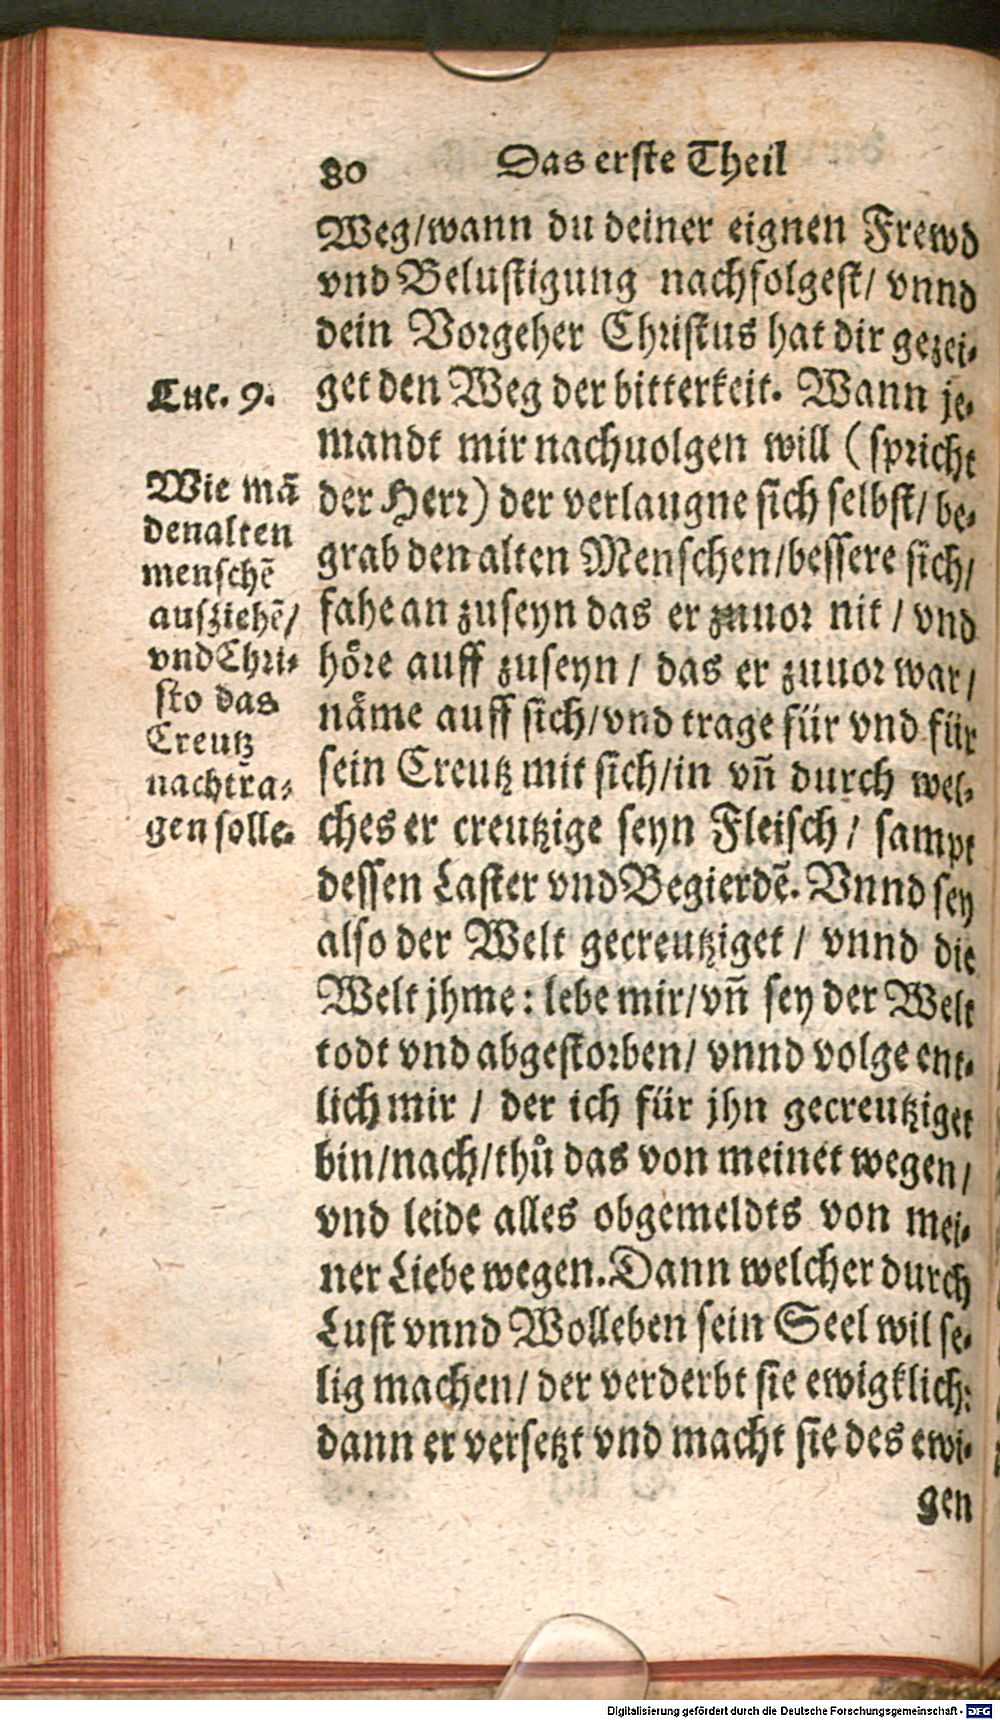 80 Das erste Theil
Weg/wann du deiner eignen Frewd
vnd Belustigung nachfolgest/ vnnd
dein Vorgeher Christus hat dir gezei-
get den Weg der bitterkeit. Wann je-
mandt mir nachuolgen will (spricht
der Herr) der verlaugne sich selbst/ be-
grab den alten Menschen/bessere sich/
fahe an zuseyn das er zuuor nit / vnd
höre auff zuseyn / das er zuuor war/
näme auff sich/vnd trage für vnd für
sein Creutz mit sich/in vn̄ durch wel-
ches er creutzige seyn Fleisch / sampt
dessen Laster vnd Begierdē. Vnnd sey
also der Welt gecreutziget / vnnd die
Welt jhme: lebe mir/vn̄ sey der Welt
todt vnd abgestorben/ vnnd volge ent-
lich mir / der ich für jhn gecreutziget
bin/nach/thů das von meinet wegen/
vnd leide alles obgemeldts von mei-
ner Liebe wegen. Dann welcher durch
Lust vnnd Wolleben sein Seel wil se-
lig machen/ der verderbt sie ewigklich:
dann er versetzt vnd macht sie des ewi-
gen
Luc. 9.
Wie mā
den alten
menschē
ausziehē/
vnd Chri-
sto das
Creutz
nachtra-
gen solle.
Digitalisierung gefördert durch die Deutsche Forschungsgemeinschaft - DFG